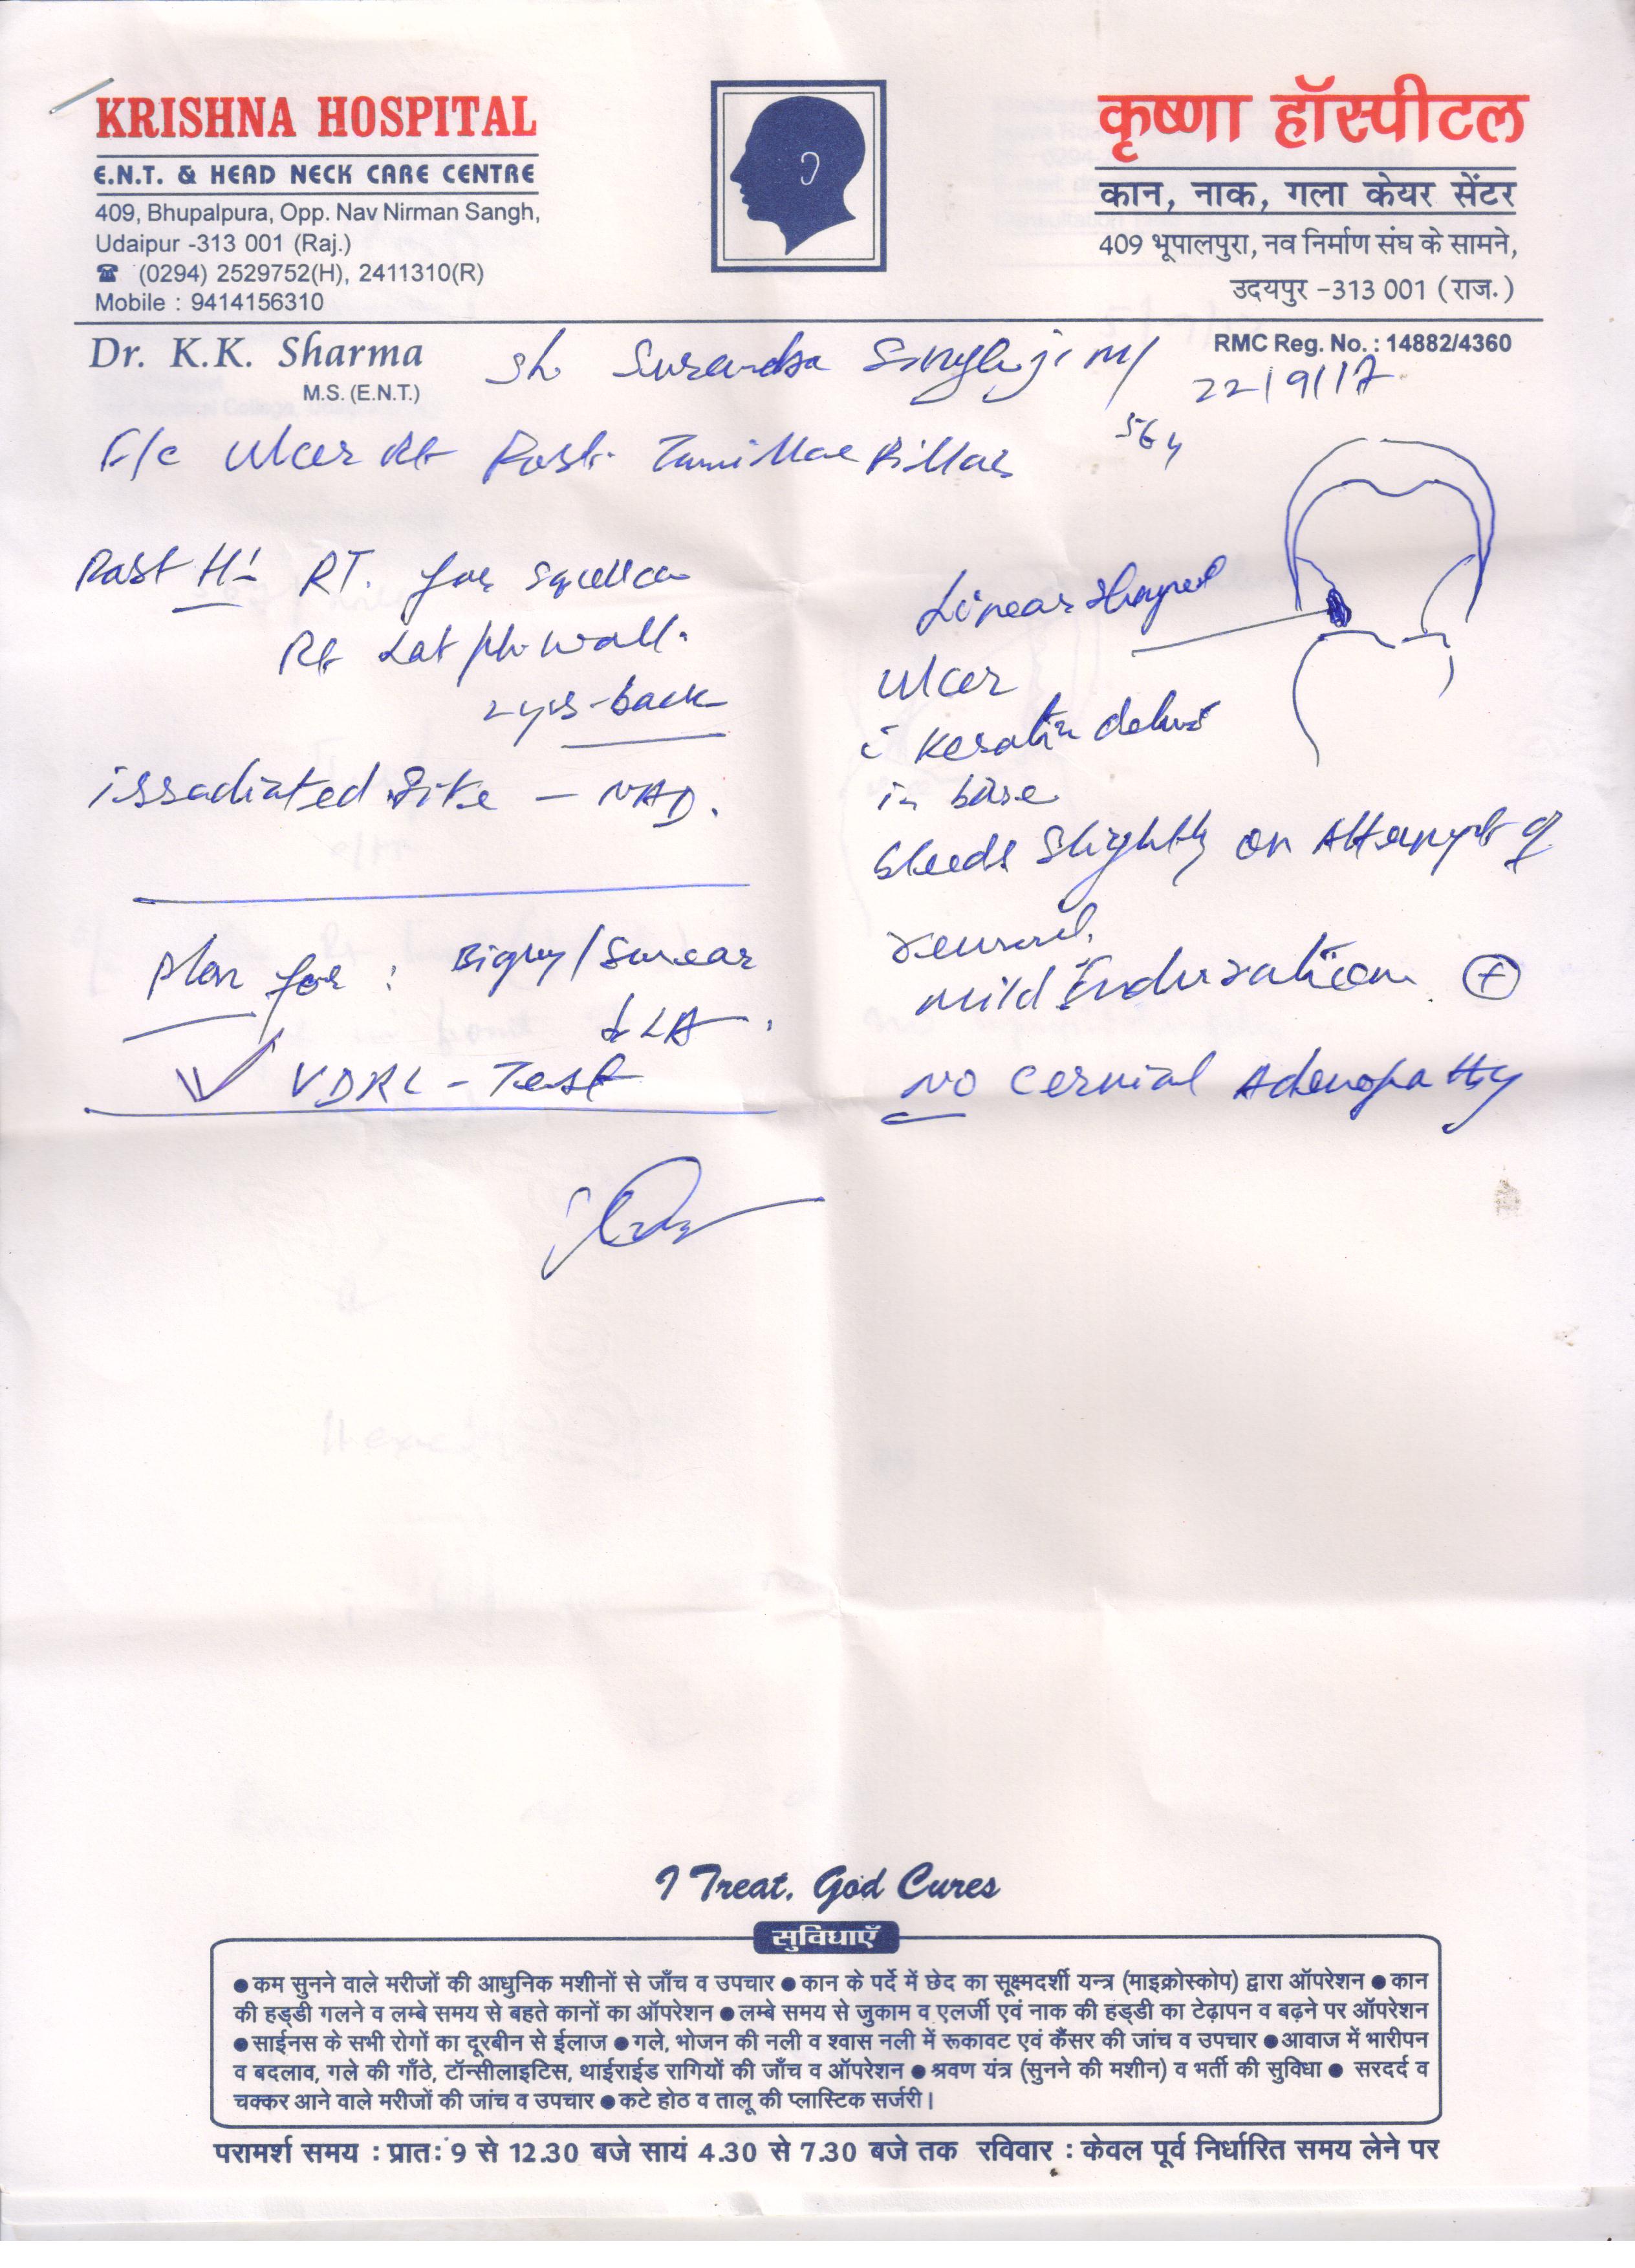 KRISHNA HOSPITAL
E.N.T. & HEAD NECK CARE CENTRE
409, Bhupalpura, Opp. Nav Nirman Sangh,
Udaipur -313 001 (Raj.)
☎ (0294) 2529752(H), 2411310(R)
Mobile : 9414156310
कृष्णा हॉस्पीटल
कान, नाक, गला केयर सेंटर
409 भूपालपुरा, नव निर्माण संघ के सामने,
उदयपुर -313 001 (राज.)
Dr. K.K. Sharma
M.S. (E.N.T.)
RMC Reg. No. : 14882/4360
Sh Surendra Singh ji m/
22/9/17
56y
F/c Ulcer Rt Post. Tonsillar Pillar
Past H/- RT. for
Rt Lat ph. wall.
2 yrs-back
irradiated site - NAD.
Plan for : Biopsy/Smear
LA.
VDRL - Test
Linear shaped
ulcer
c̄ Keratin debris
in base
bleeds slightly on Attempt of
removal.
mild Induration (+)
No cervical Adenopathy
I Treat, God Cures
सुविधाएँ
● कम सुनने वाले मरीजों की आधुनिक मशीनों से जाँच व उपचार ● कान के पर्दे में छेद का सूक्ष्मदर्शी यन्त्र (माइक्रोस्कोप) द्वारा ऑपरेशन ● कान
की हड्डी गलने व लम्बे समय से बहते कानों का ऑपरेशन ● लम्बे समय से जुकाम व एलर्जी एवं नाक की हड्डी का टेढ़ापन व बढ़ने पर ऑपरेशन
● साईनस के सभी रोगों का दूरबीन से ईलाज ● गले, भोजन की नली व श्वास नली में रूकावट एवं कैंसर की जांच व उपचार ● आवाज में भारीपन
व बदलाव, गले की गाँठे, टॉन्सीलाइटिस, थाईराईड रागियों की जाँच व ऑपरेशन ● श्रवण यंत्र (सुनने की मशीन) व भर्ती की सुविधा ● सरदर्द व
चक्कर आने वाले मरीजों की जांच व उपचार ● कटे होठ व तालू की प्लास्टिक सर्जरी।
परामर्श समय : प्रातः 9 से 12.30 बजे सायं 4.30 से 7.30 बजे तक रविवार : केवल पूर्व निर्धारित समय लेने पर